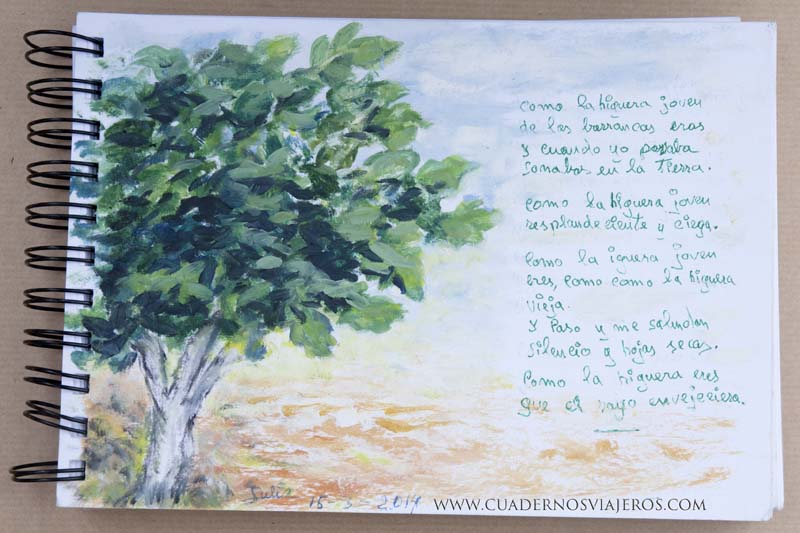 como la higuera joven
de los barrancos eras
y cuando yo pasaba
sonabas en la Tierra.
Como la higuera joven
resplandeciente y ciega.
Como la iguera joven
eres, como como la higuera
vieja.
Y Paso y me saludan
silencio y hojas secas.
Como la higuera eres
que el rayo envejeciera.
Julia 15-3-2.014
WWW.CUADERNOSVIAJEROS.COM